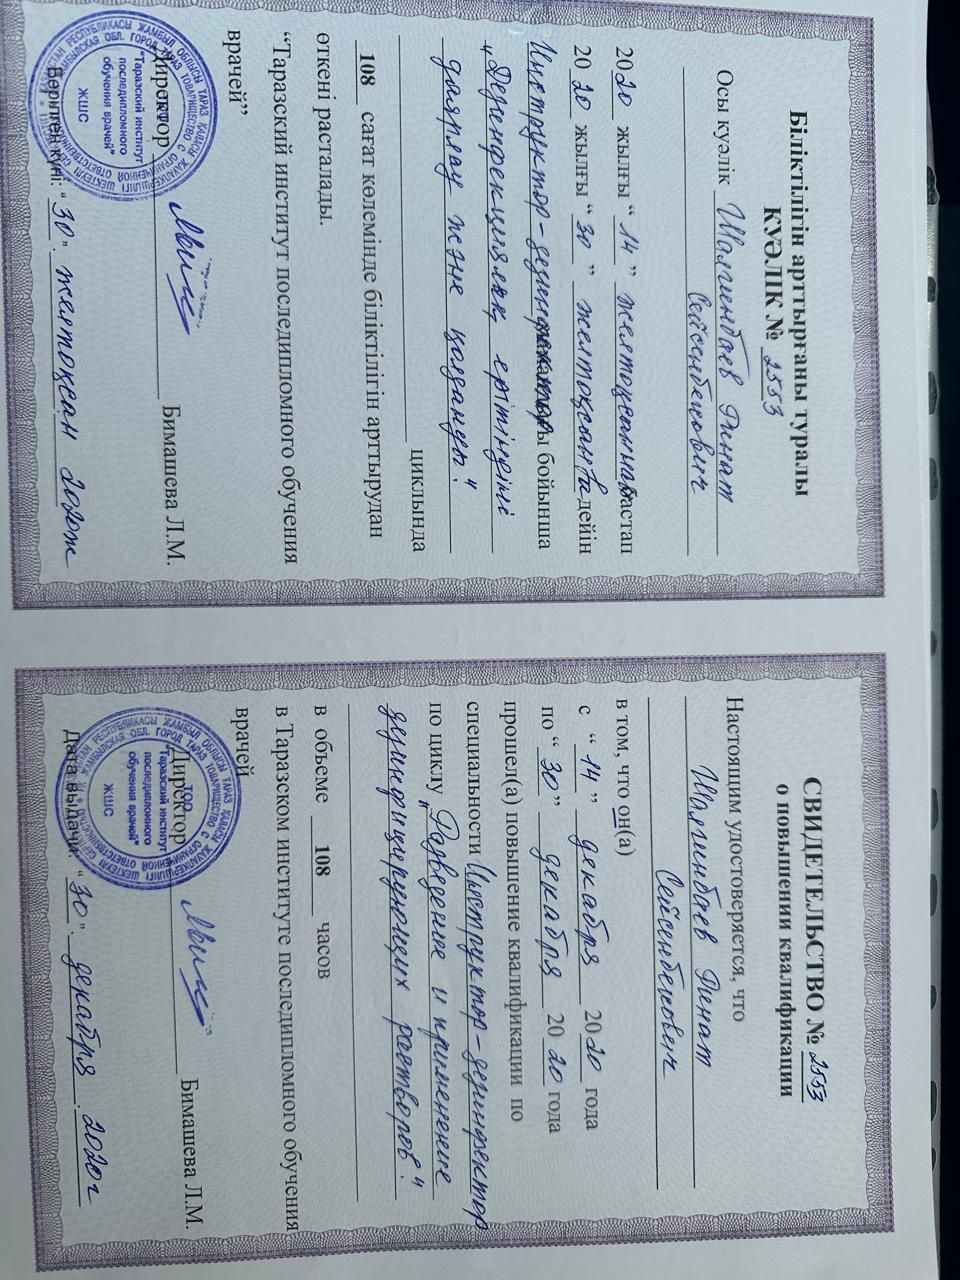 Біліктілігін арттырғаны туралы
КУӘЛІК № 2553
Осы куәлік Шалгинбаев Ринат
Сейсенбекович
2020 жылғы “14” желтоқсаннан бастап
2020 жылғы “30” желтоқсанға дейін
Инструктор-дезинфекторы бойынша
„Дезинфекциялық ерітіндіні
даярлау және қолдануы“
циклында
108 сағат көлемінде біліктілігін арттырудан
өткені расталады.
“Таразский институт последипломного обучения
врачей”
Директор Бимашева Л.М.
Берілген күні: “30”. желтоқсан 2020ж
ЖШС
"Таразский институт
последипломного
обучения врачей"
СВИДЕТЕЛЬСТВО № 2553
о повышении квалификации
Настоящим удостоверяется, что
Шалгинбаев Ринат
Сейсенбекович
в том, что он(а)
с “14” декабря 2020 года
по “30” декабря 2020 года
прошел(а) повышение квалификации по
специальности Инструктор-дезинфектор
по циклу „Разведение и применение
дезинфицирующих растворов“
в объеме 108 часов
в Таразском институте последипломного обучения
врачей
Директор Бимашева Л.М.
Дата выдачи: “30”. декабря. 2020г
ТОО
"Таразский институт
последипломного
обучения врачей"
ЖШС